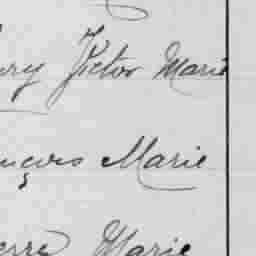 ury Victor Marie
nçois Marie
erre Marie